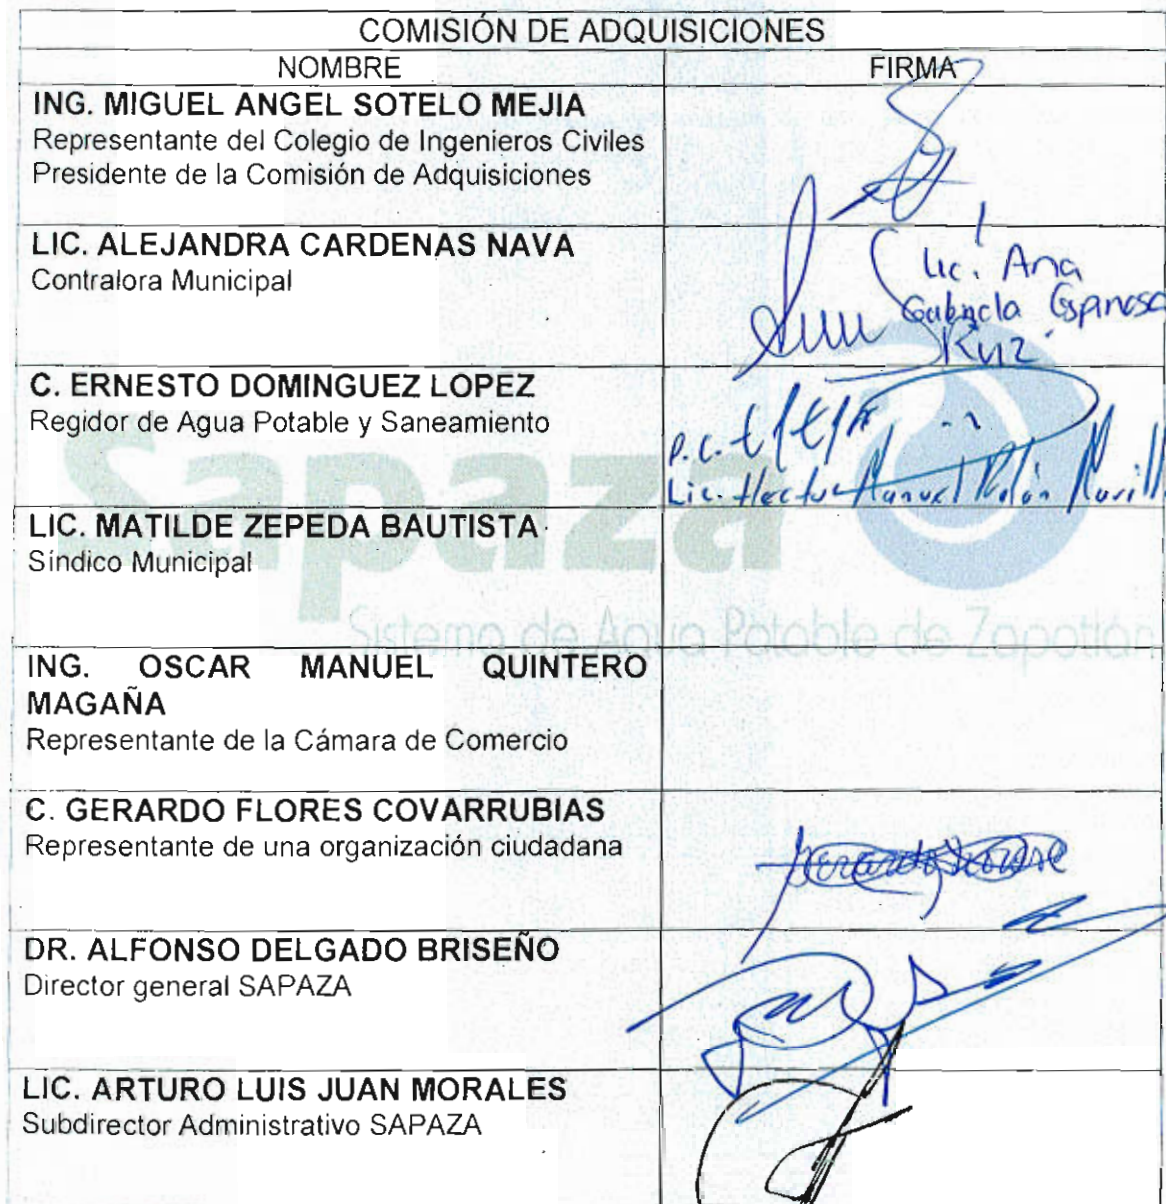 COMISIÓN DE ADQUISICIONES
NOMBRE FIRMA
ING. MIGUEL ANGEL SOTELO MEJIA
Representante del Colegio de Ingenieros Civiles
Presidente de la Comisión de Adquisiciones
LIC. ALEJANDRA CARDENAS NAVA
Contralora Municipal
Lic. Ana
Gabriela Espinosa
Ruiz
C. ERNESTO DOMINGUEZ LOPEZ
Regidor de Agua Potable y Saneamiento
P.C.
Lic. Hector Manuel
LIC. MATILDE ZEPEDA BAUTISTA
Síndico Municipal
Sapaza
Sistema de Agua Potable de Zapotlán
ING. OSCAR MANUEL QUINTERO
MAGAÑA
Representante de la Cámara de Comercio
C. GERARDO FLORES COVARRUBIAS
Representante de una organización ciudadana
DR. ALFONSO DELGADO BRISEÑO
Director general SAPAZA
LIC. ARTURO LUIS JUAN MORALES
Subdirector Administrativo SAPAZA